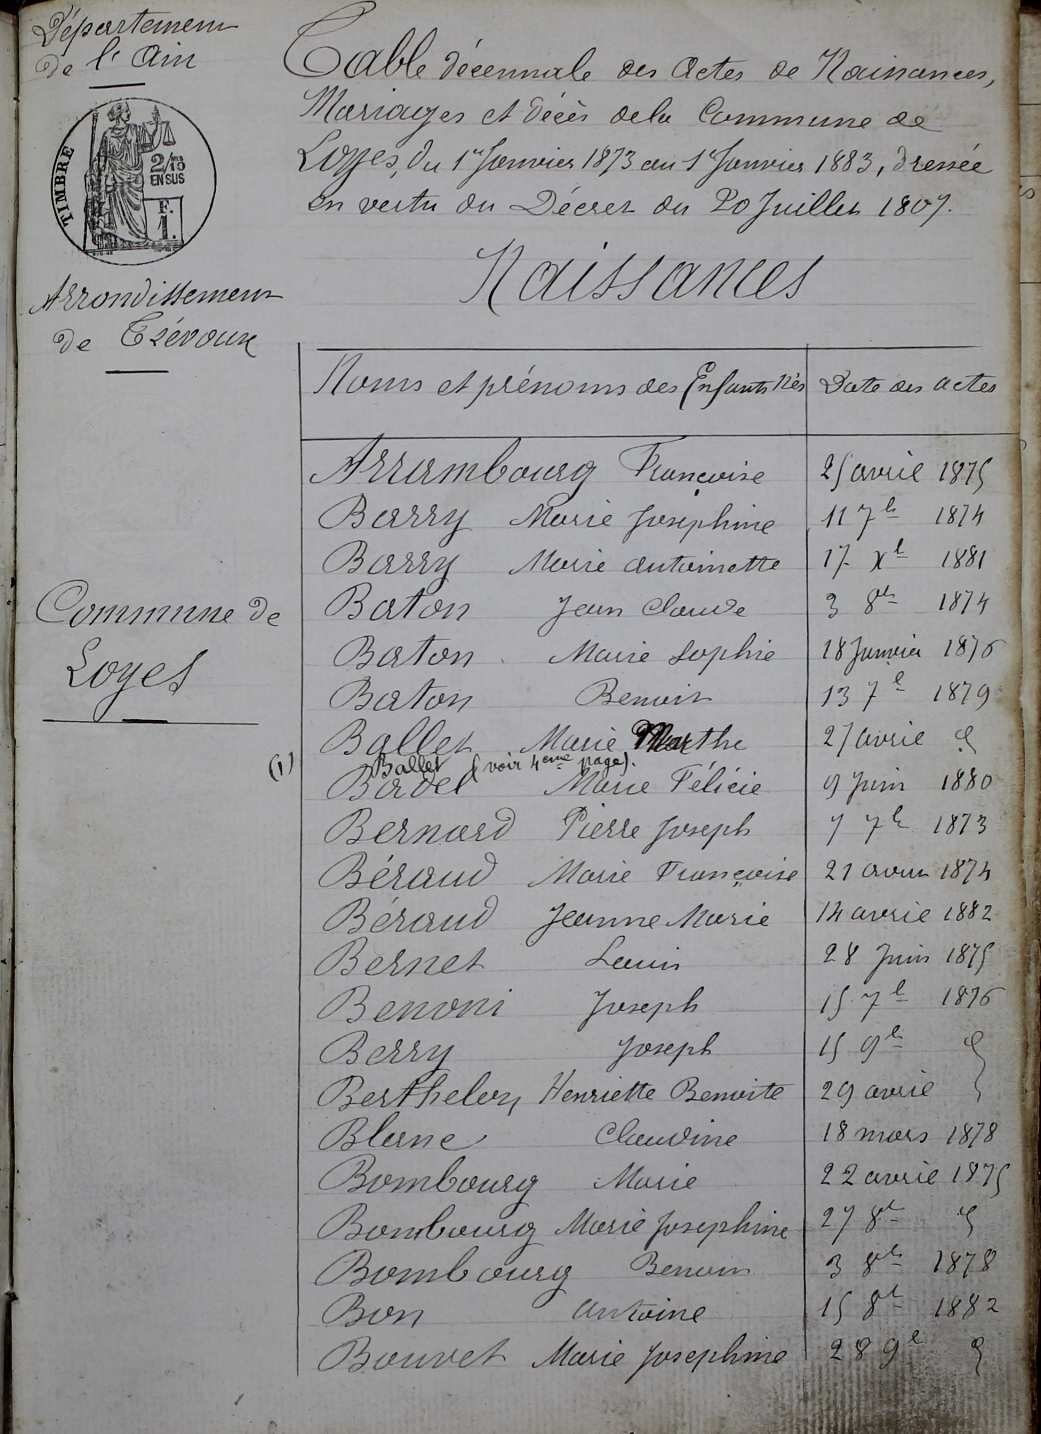 Département
de l'Ain
TIMBRE
2/10mes
EN SUS
F.
1.
Arrondissement
de Trévoux
Commune de
Loyes
Table décennale des Actes de Naissances,
Mariages et Décès de la Commune de
Loyes, du 1er Janvier 1873 au 1er Janvier 1883, dressée
en vertu du Décret du 20 Juillet 1807.
Naissances
Noms et prénoms des Enfants Nés Date des actes
Arrambourg Françoise 25 avril 1875
Barry Marie Josephine 11 7b 1874
Barry Marie Antoinette 17 Xb 1881
Baton Jean Claude 3 8b 1874
Baton Marie Sophie 18 Janvier 1876
Baton Benoit 13 7b 1879
Ballet Marie Marthe 27 avril d
(1) Ballet (voir 4eme page).
Badel Marie Félicie 9 Juin 1880
Bernard Pierre Joseph 7 7b 1873
Béraud Marie Françoise 21 1874
Béraud Jeanne Marie 14 avril 1882
Bernet Louis 28 Juin 1875
Benoni Joseph 15 7b 1876
Berry Joseph 15 9b d
Berthelon Henriette Benoite 29 avril
Blanc Claudine 18 mars 1878
Bombourg Marie 22 avril 1875
Bombourg Marie Josephine 27 8b d
Bombourg Benoit 3 8b 1878
Bon Antoine 15 8b 1882
Bouvet Marie Josephine 28 9b d